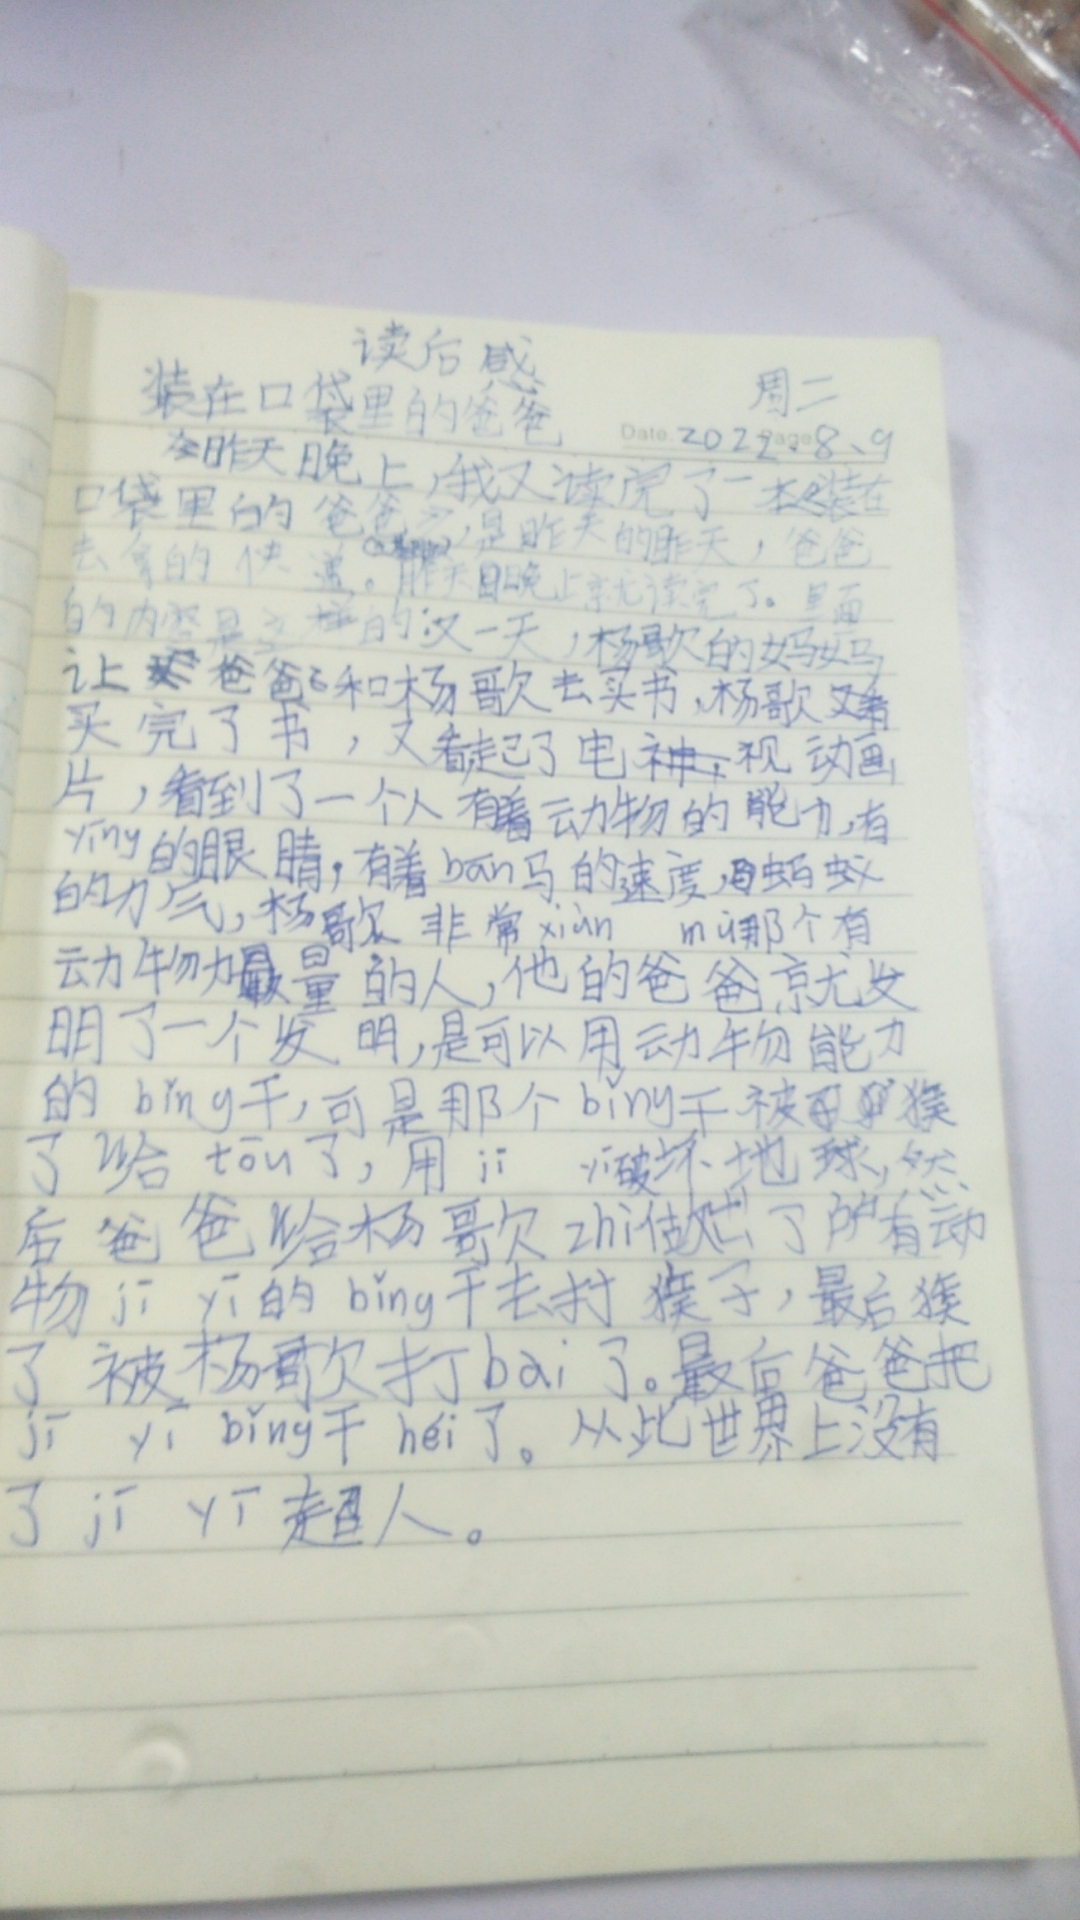 读后感
装在口袋里的爸爸 周二
Date. 2022.8.9 Page
昨天晚上,我又读完了一本《装在
口袋里的爸爸》,是昨天的昨天,爸爸
去拿的快递。昨天晚上就读完了。里面
的内容是这样的:又一天,杨歌的妈妈
让爸爸和杨歌去买书,杨歌
买完了书,又看起了电视动画
片,看到了一个人有着动物的能力,有
yīng的眼睛,有着bān马的速度,蚂蚁
的力气,杨歌非常xiàn mù那个有
动物力量的人,他的爸爸就发
明了一个发明,是可以用动物能力
的bǐng干,可是那个bǐng干被猴
了给tōu了,用jī yī破坏地球,然
后爸爸给杨歌zhi做出了所有动
物jī yī的bǐng干去打猴子,最后猴
了被杨歌打bai了。最后爸爸把
jī yī bǐng干héi了。从此世界上没有
了jī yī超人。